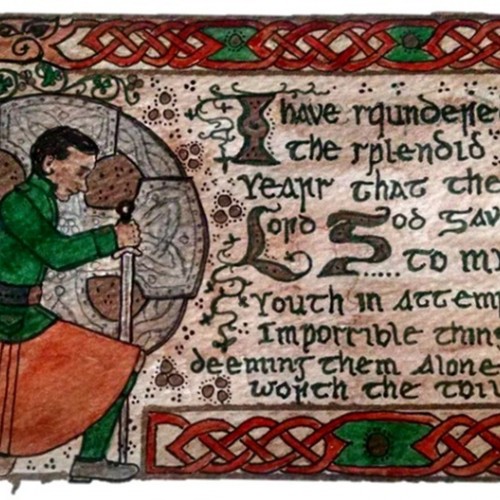 I have squandere
the splendid
Years that the
Lord God Gav
.....to my
Youth in Attem
Impossible thing
deeming them Alone
worth the toil